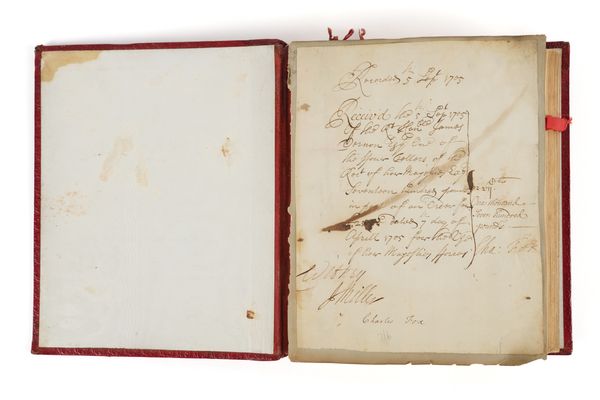 Recorded 5th Sept 1705
Receiv'd the 5th Sept 1705
of the Rt Honble James
Vernon Esq One of
the ffour Tellers of the
Rect of her Majts Excr
Seventeen hundred pounds
in of an Order
dated 7th day of
Aprill 1705 for the
of her Majesties fforces
One thousand
Seven hundred
pounds
Cha: Fox
Charles Fox